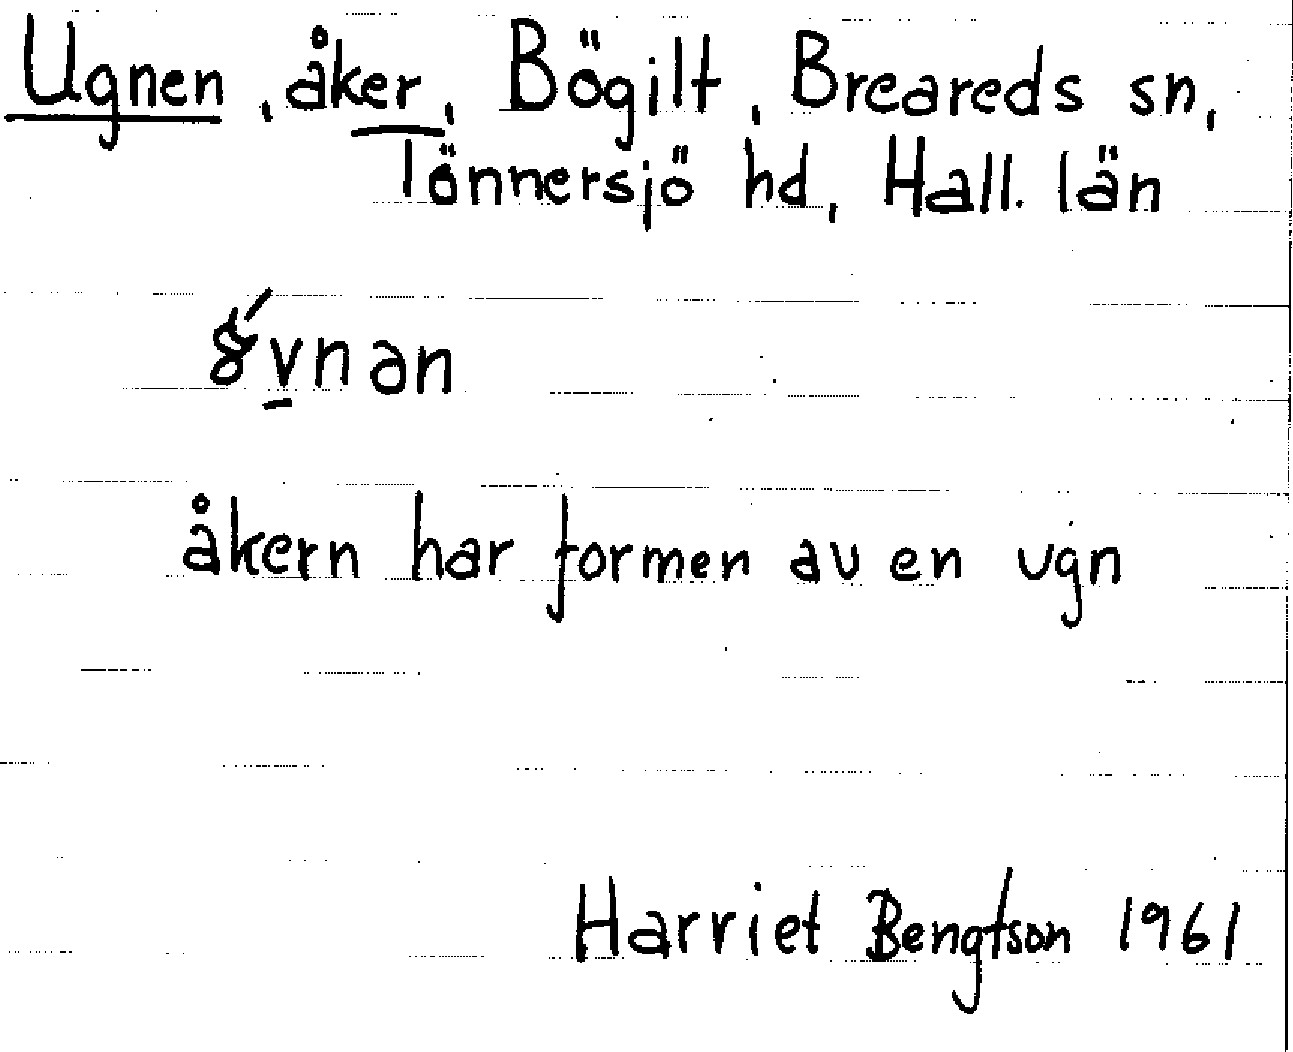 Ugnen, åker, Bögilt, Breareds sn,
Tönnersjö hd, Hall. län
åkern har formen av en ugn
Harriet Bengtson 1961